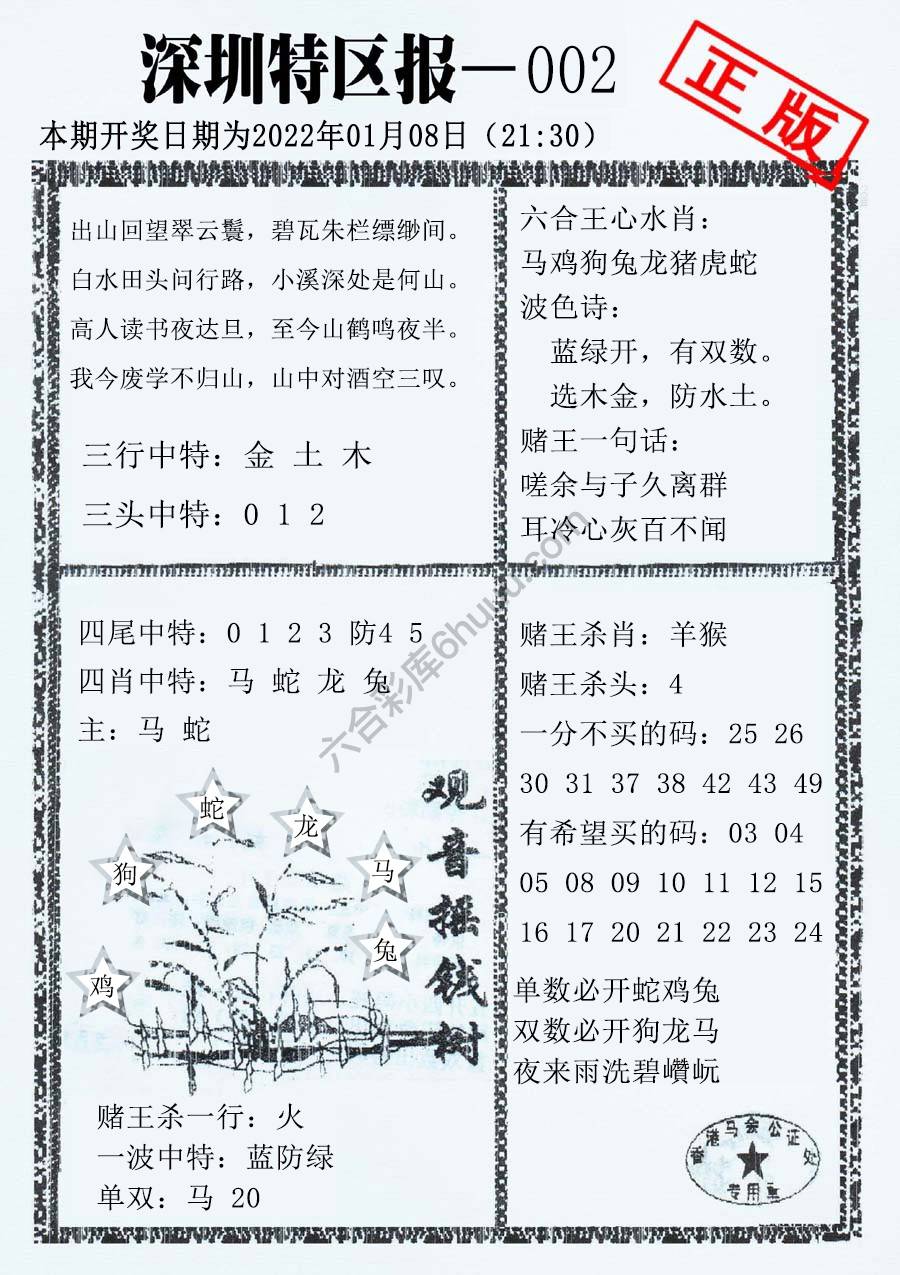 深圳特区报—002
正版
本期开奖日期为2022年01月08日（21:30）
出山回望翠云鬟，碧瓦朱栏缥缈间。
白水田头问行路，小溪深处是何山。
高人读书夜达旦，至今山鹤鸣夜半。
我今废学不归山，山中对酒空三叹。
三行中特：金 土 木
三头中特：0 1 2
六合王心水肖：
马鸡狗兔龙猪虎蛇
波色诗：
蓝绿开，有双数。
选木金，防水土。
赌王一句话：
嗟余与子久离群
耳冷心灰百不闻
四尾中特：0 1 2 3 防4 5
四肖中特：马 蛇 龙 兔
主：马 蛇
蛇
龙
狗
马
兔
鸡
观音摇钱树
赌王杀一行：火
一波中特：蓝防绿
单双：马 20
赌王杀肖：羊猴
赌王杀头：4
一分不买的码：25 26
30 31 37 38 42 43 49
有希望买的码：03 04
05 08 09 10 11 12 15
16 17 20 21 22 23 24
单数必开蛇鸡兔
双数必开狗龙马
夜来雨洗碧巑岏
香港马会公证处
专用章
六合彩库6huuu.com